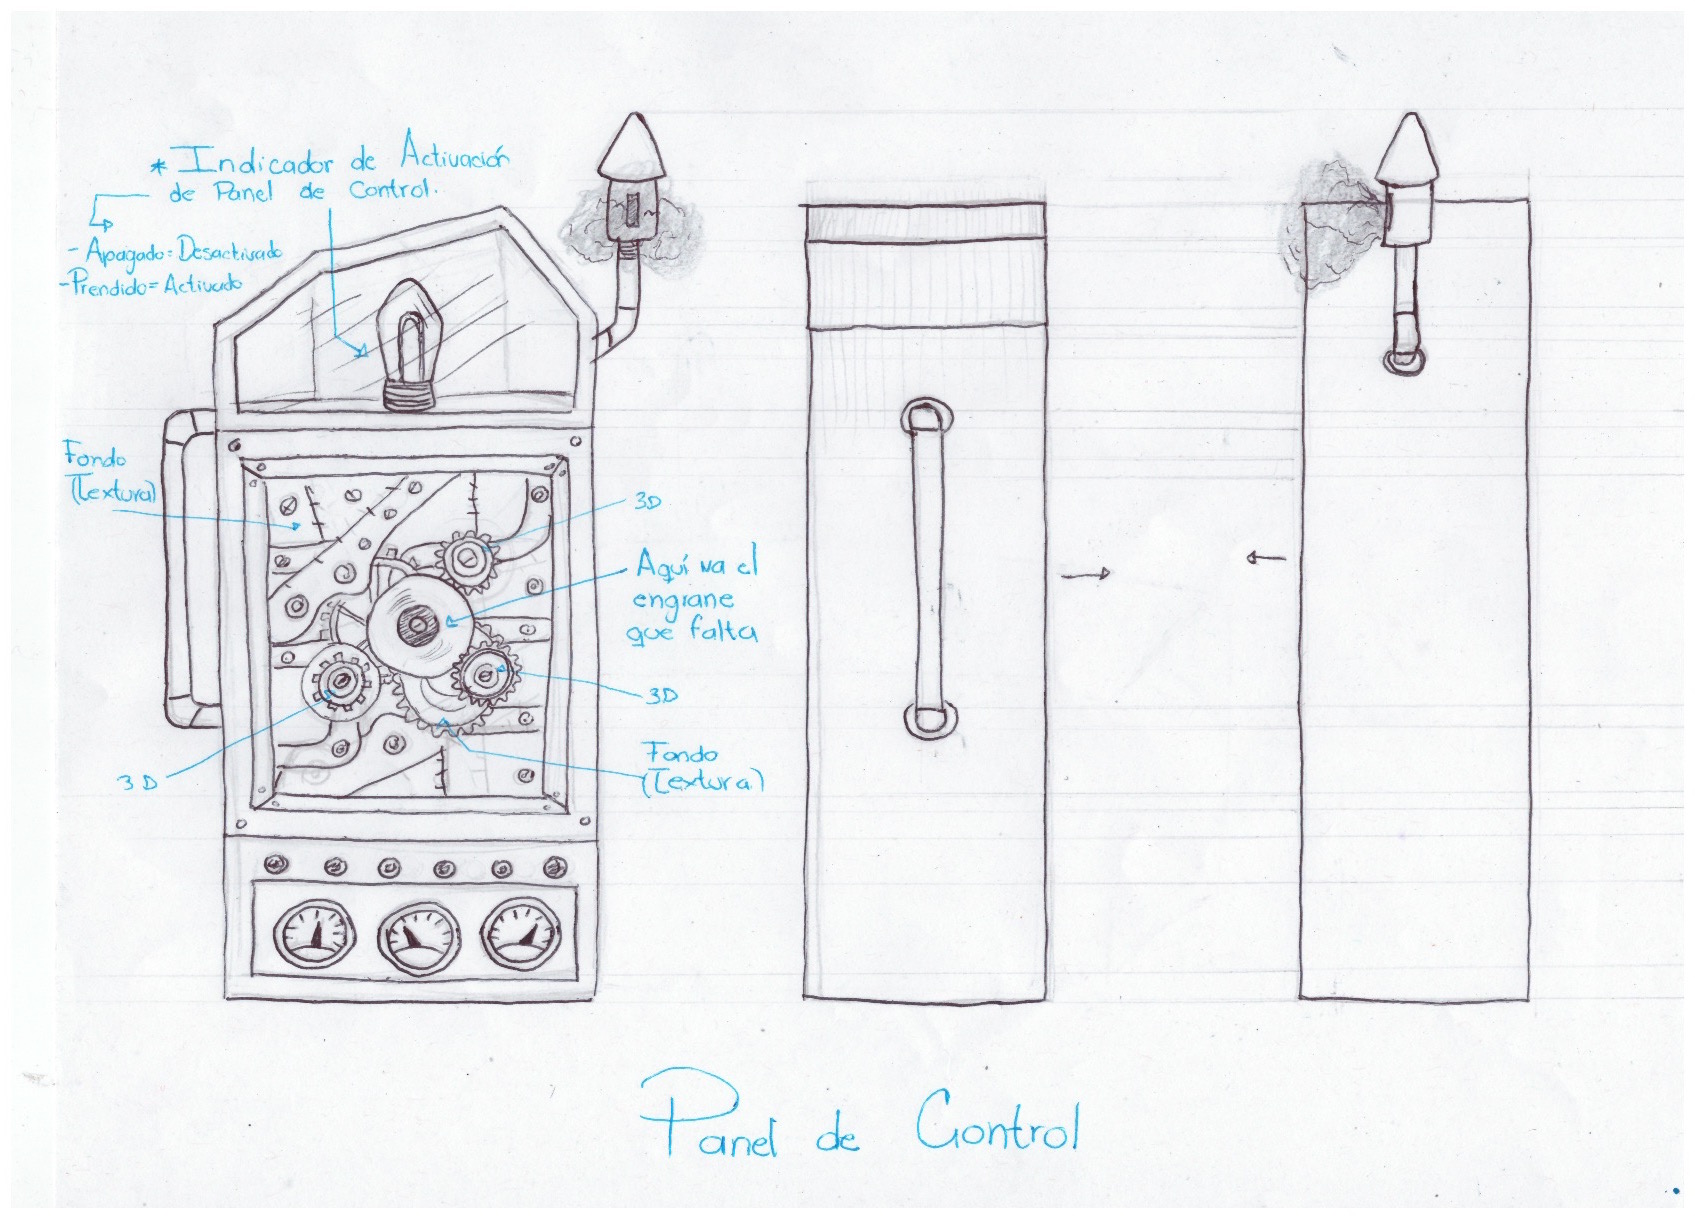 * Indicador de Activación
de Panel de Control.
- Apagado = Desactivado
- Prendido = Activado
Fondo
(Textura)
3D
Aquí va el
engrane
que falta
3D
Fondo
(Textura)
3D
Panel de Control